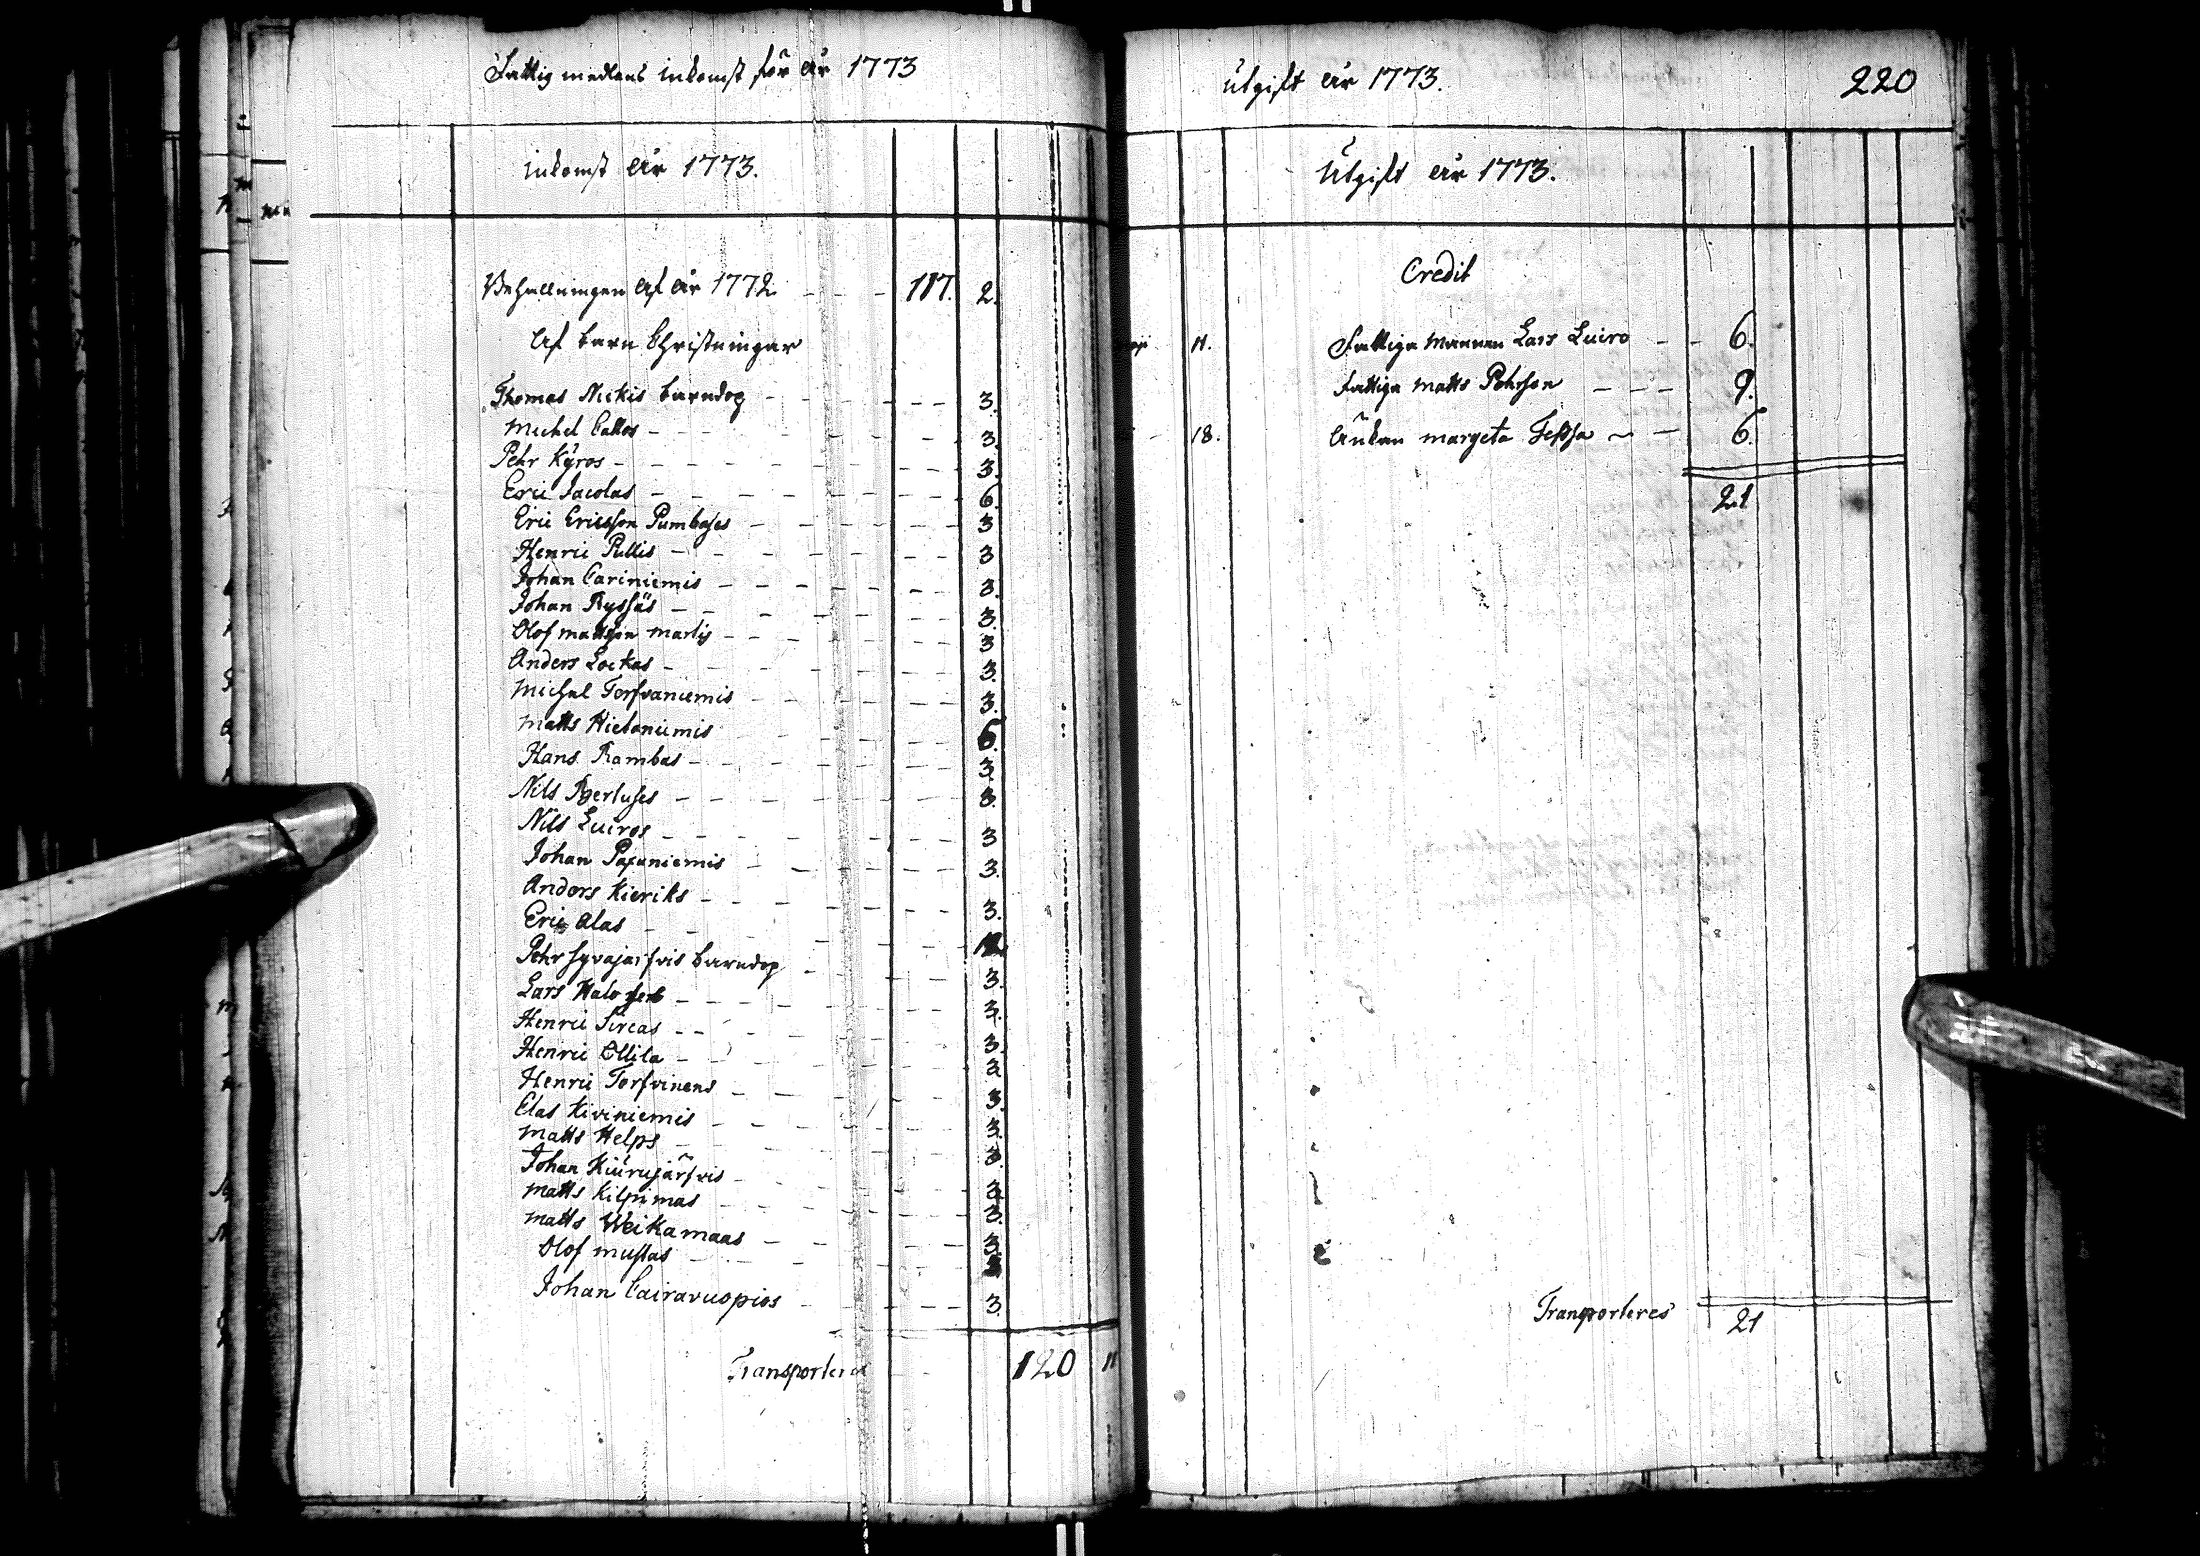 Fattig medlens inkomst för år 1773
inkomst år 1773.
Behållningen af år 1772 117. 2.
Af barn Christningar
Thomas Nickis barndop 3.
Michel Callos 3.
Pehr Kÿros 3.
Eric Jacolas 6.
Eric Ericsson Pumbases 3
Henric Pullis 3
Johan Cariniemis 3.
Johan Ryssäs 3.
Olof Mattsson Martis 3
Anders Lockas 3.
Michel Torfvaniemis 3.
Matts Hietaniemis 6.
Hans Rambas 3.
Nils Perluses 3.
Nils Luiros 3
Johan Paxuniemis 3.
Anders Kieriks 3.
Eric Alas 12
Pehr Syväjärfvis barndop 3.
Lars Halo 3.
Henric Sircas 3.
Henric Ollila 3
Henric Torfvinens 3.
Clas Kiviniemis 3.
Matts Helps 3.
Johan Kiurujärfvis 3.
Matts Kilpimas 3.
Matts Weikamaas 3.
Olof Mustas
Johan Cairavuopios 3.
Transporteres 120 11
utgift år 1773. 220
Utgift år 1773.
Credit
11. Fattiga mannen Lars Luiro 6.
Fattiga Matts Pehrson 9.
18. Änkan Margeta 6.
21
Transporteres 21